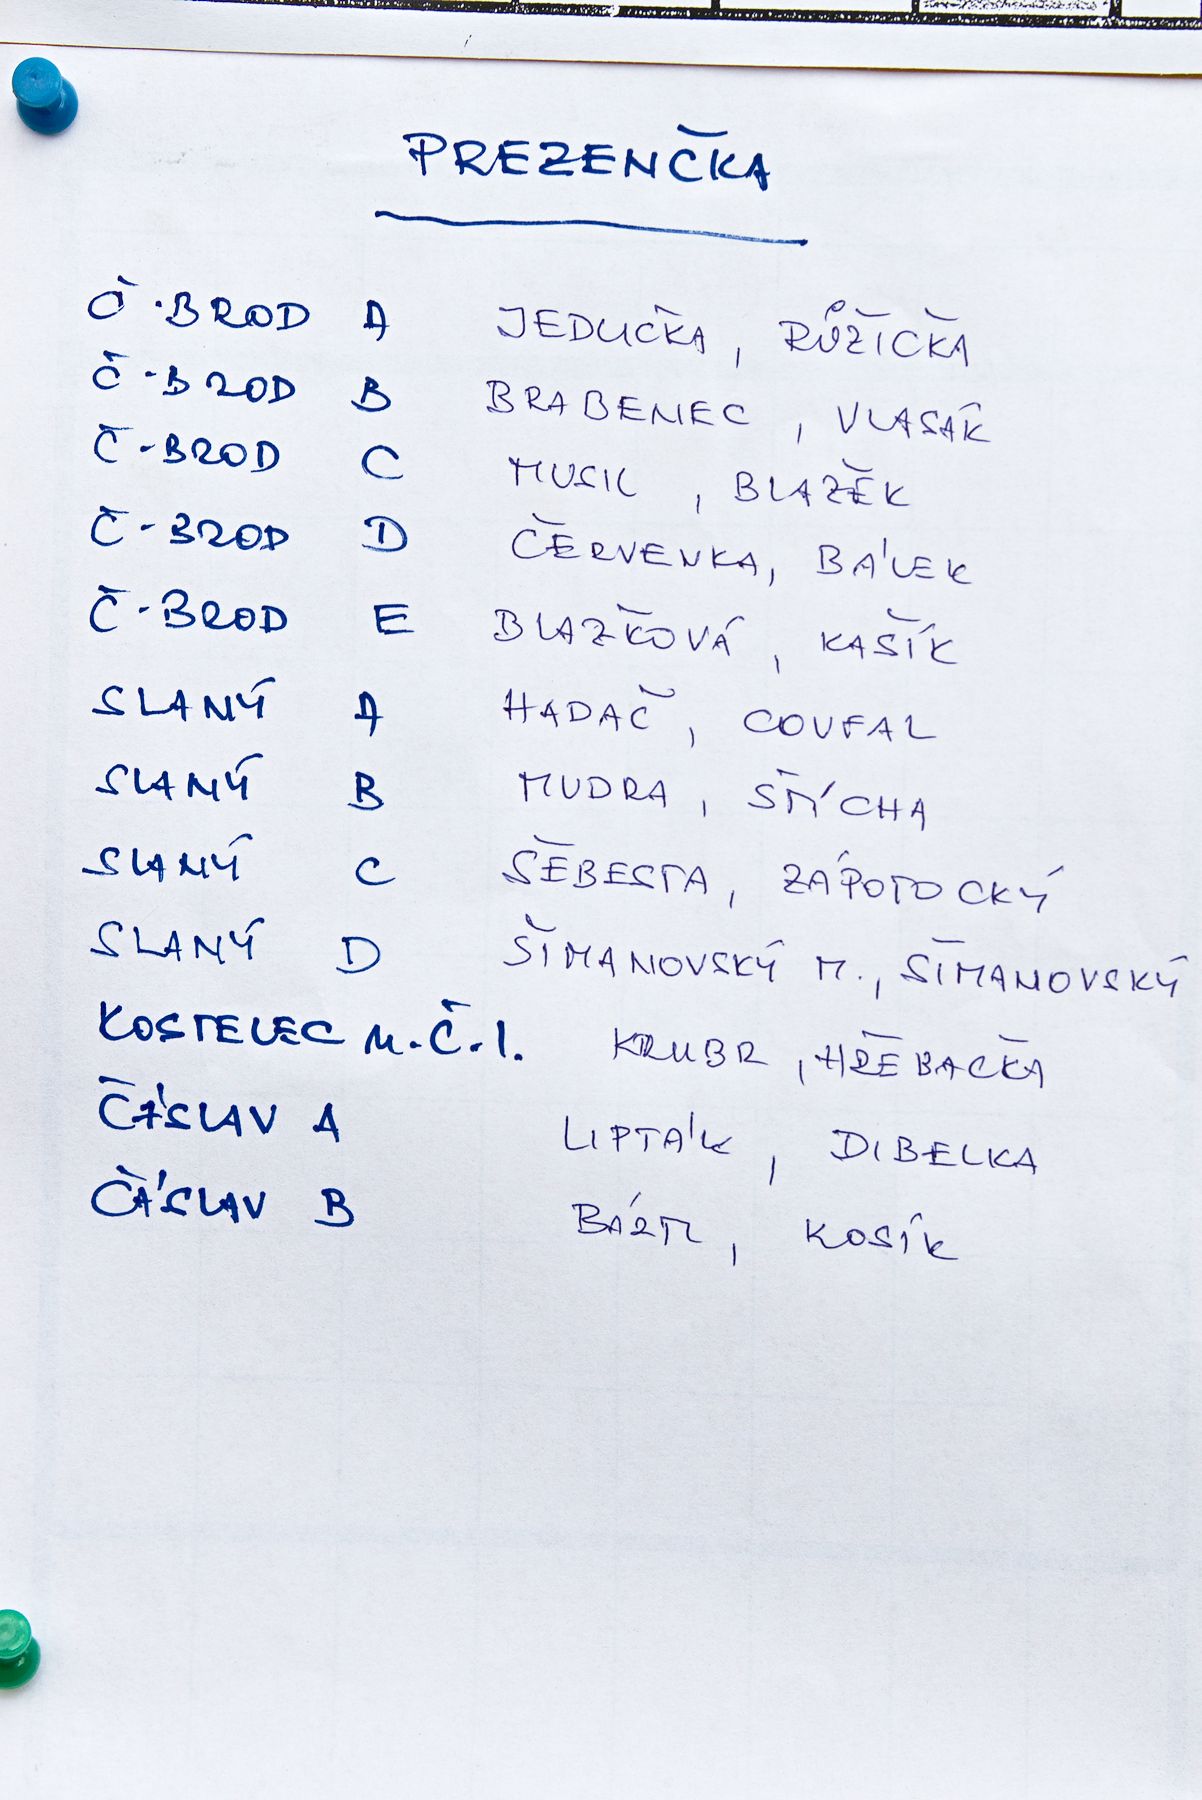 PREZENČKA
Č-BROD A JEDLIČKA, RŮŽIČKA
Č-BROD B BRABENEC, VLASÁK
Č-BROD C MUSIL, BLAŽEK
Č-BROD D ČERVENKA, BÁLEK
Č-BROD E BLAŽKOVÁ, KAŠÍK
SLANÝ A HADAČ, COUFAL
SLANÝ B MUDRA, ŠTÍCHA
SLANÝ C ŠEBESTA, ZÁPOTOCKÝ
SLANÝ D ŠIMANOVSKÝ M., ŠIMANOVSKÝ
KOSTELEC N.Č.L. KRUBR, HŘEBAČKA
ČÁSLAV A LIPTÁK, DIBELKA
ČÁSLAV B BÁRTL, KOSÍK